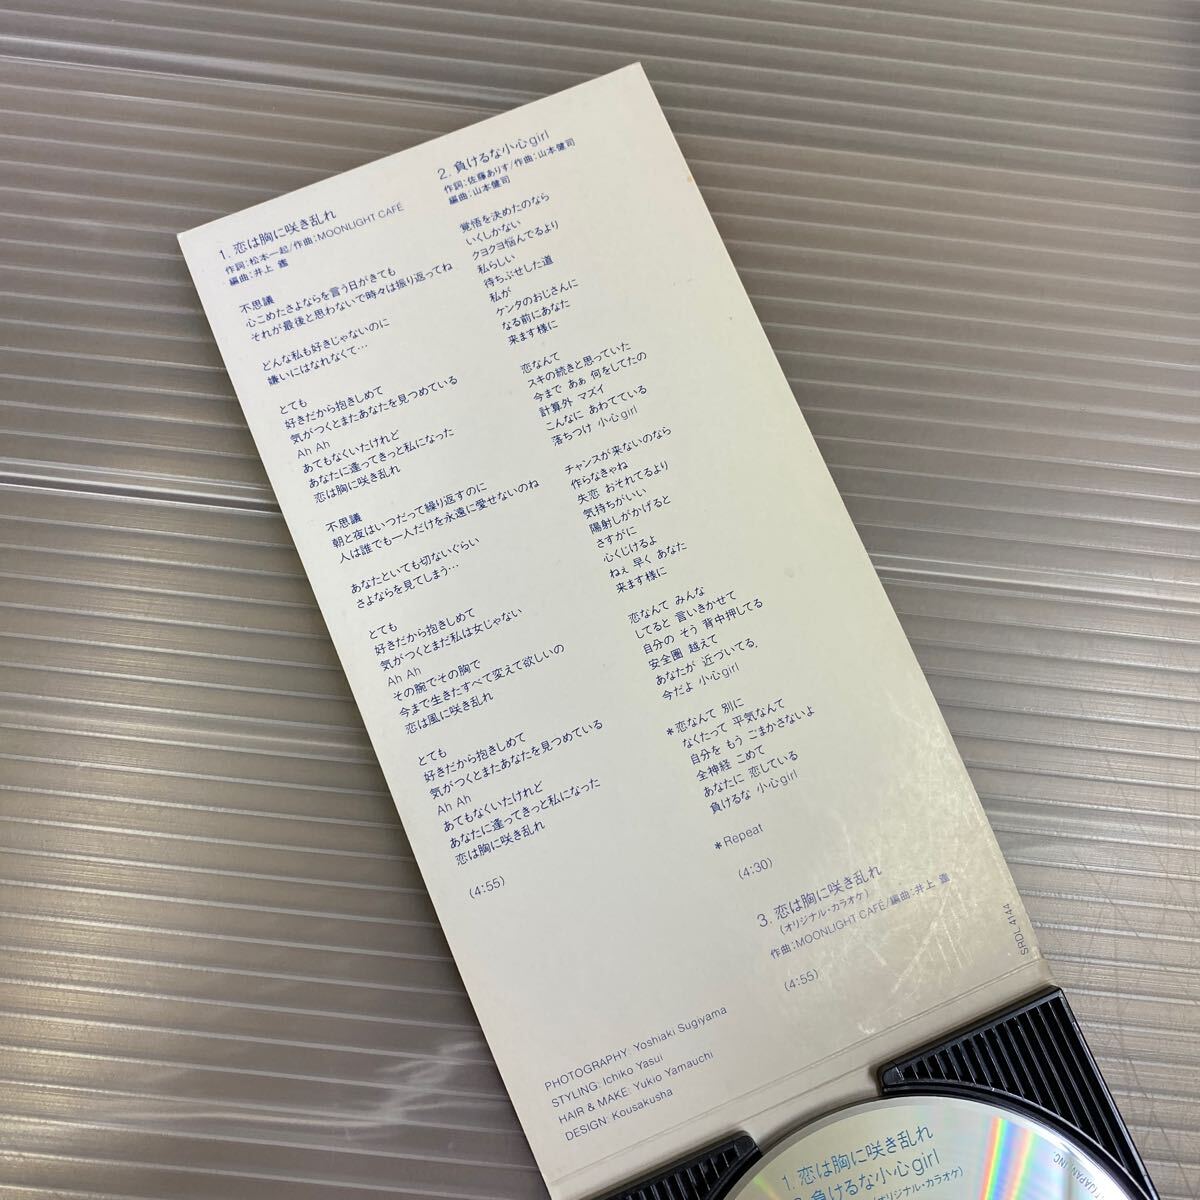 1. 恋は胸に咲き乱れ
作詞:松本一起/作曲:MOONLIGHT CAFÉ
編曲:井上 鑑
不思議
心こめたさよならを言う日がきても
それが最後と思わないで時々は振り返ってね
どんな私も好きじゃないのに
嫌いにはなれなくて…
とても
好きだから抱きしめて
気がつくとまたあなたを見つめている
Ah Ah
あてもなくいたけれど
あなたに逢ってきっと私になった
恋は胸に咲き乱れ
不思議
朝と夜はいつだって繰り返すのに
人は誰でも一人だけを永遠に愛せないのね
あなたといても切ないぐらい
さよならを見てしまう…
とても
好きだから抱きしめて
気がつくとまだ私は女じゃない
Ah Ah
その腕でその胸で
今まで生きたすべて変えて欲しいの
恋は風に咲き乱れ
とても
好きだから抱きしめて
気がつくとまたあなたを見つめている
Ah Ah
あてもなくいたけれど
あなたに逢ってきっと私になった
恋は胸に咲き乱れ
(4:55)
2. 負けるな小心girl
作詞:佐藤ありす/作曲:山本健司
編曲:山本健司
覚悟を決めたのなら
いくしかない
クヨクヨ悩んでるより
私らしい
待ちぶせした道
私が
ケンタのおじさんに
なる前にあなた
来ます様に
恋なんて
スキの続きと思っていた
今まで あぁ 何をしてたの
計算外 マズイ
こんなに あわてている
落ちつけ 小心girl
チャンスが来ないのなら
作らなきゃね
失恋 おそれてるより
気持ちがいい
陽射しがかげると
さすがに
心くじけるよ
ねぇ 早く あなた
来ます様に
恋なんて みんな
してると 言いきかせて
自分の そう 背中押してる
安全圏 越えて
あなたが 近づいてる,
今だよ 小心girl
*恋なんて 別に
なくたって 平気なんて
自分を もう ごまかさないよ
全神経 こめて
あなたに 恋している
負けるな 小心girl
*Repeat
(4:30)
3. 恋は胸に咲き乱れ
(オリジナル・カラオケ)
作曲:MOONLIGHT CAFÉ/編曲:井上 鑑
(4:55)
SRDL 4144
PHOTOGRAPHY: Yoshiaki Sugiyama
STYLING: Ichiko Yasui
HAIR & MAKE: Yukio Yamauchi
DESIGN: Kousakusha
1. 恋は胸に咲き乱れ
負けるな小心girl
(オリジナル・カラオケ)
JAPAN) INC.